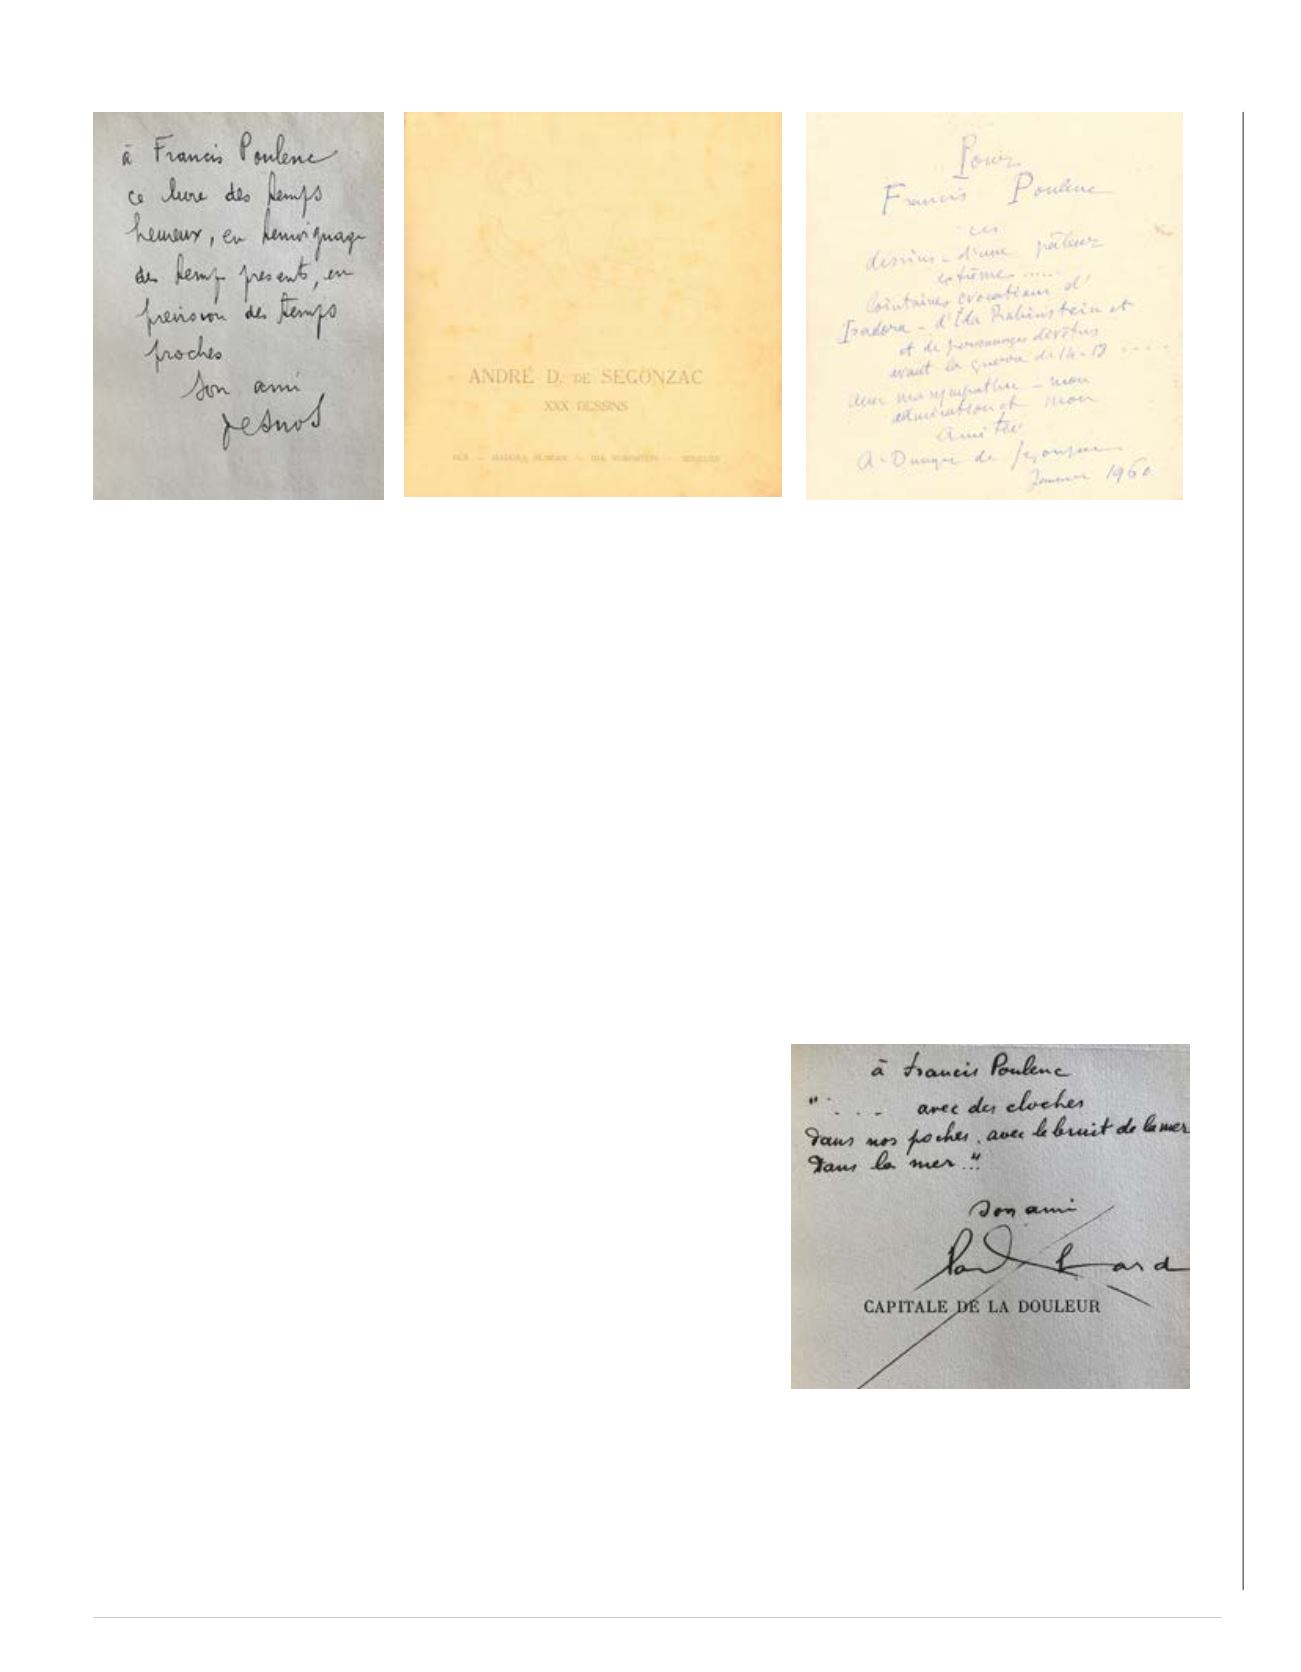 à Francis Poulenc
ce livre des temps
heureux, en témoignage
des temps présents, en
prévision des temps
proches
Son ami
Desnos
ANDRÉ D. DE SEGONZAC
XXX DESSINS
ISADORA DUNCAN — IDA RUBINSTEIN
Pour
Francis Poulenc
ces
dessins - d'une pâleur
extrême .....
lointaines évocations d'
Isadora - d'Ida Rubinstein et
et de personnages dévêtus
avant la guerre de 14-18 ....
avec ma sympathie - mon
admiration et mon
amitié
A. Dunoyer de Segonzac
1960
à Francis Poulenc
"... avec des cloches
Dans nos poches, avec le bruit de la mer
Dans la mer..."
Son ami
Paul Eluard
CAPITALE DE LA DOULEUR